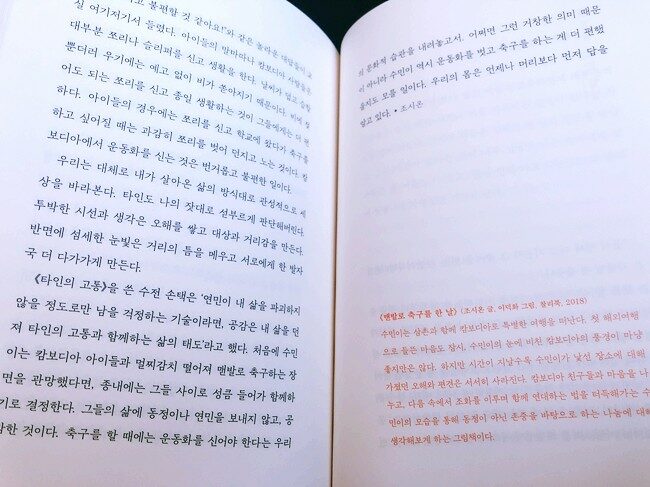 고 불편할 것 같아요!'와 같은 놀라운 대답들이 교
실 여기저기서 들렸다. 아이들의 말마따나 캄보디아 사람들은
대부분 쪼리나 슬리퍼를 신고 생활을 한다. 날씨가 덥고 습할
뿐더러 우기에는 예고 없이 비가 쏟아지기 때문이다. 비에 젖
어도 되는 쪼리를 신고 종일 생활하는 것이 그들에게는 더 편
하다. 아이들의 경우에는 쪼리를 신고 학교에 왔다가 축구를
하고 싶어질 때는 과감히 쪼리를 벗어 던지고 노는 것이다. 캄
보디아에서 운동화를 신는 것은 번거롭고 불편한 일이다.
우리는 대체로 내가 살아온 삶의 방식대로 관성적으로 세
상을 바라본다. 타인도 나의 잣대로 섣부르게 판단해버린다.
투박한 시선과 생각은 오해를 쌓고 대상과 거리감을 만든다.
반면에 섬세한 눈빛은 거리의 틈을 메우고 서로에게 한 발자
국 더 다가가게 만든다.
《타인의 고통》을 쓴 수전 손택은 '연민이 내 삶을 파괴하지
않을 정도로만 남을 걱정하는 기술이라면, 공감은 내 삶을 던
져 타인의 고통과 함께하는 삶의 태도'라고 했다. 처음에 수민
이는 캄보디아 아이들과 멀찌감치 떨어져 맨발로 축구하는 장
면을 관망했다면, 종내에는 그들 사이로 성큼 들어가 함께하
기로 결정한다. 그들의 삶에 동정이나 연민을 보내지 않고, 공
감한 것이다. 축구를 할 때에는 운동화를 신어야 한다는 우리
의 문화적 습관을 내려놓고서. 어쩌면 그런 거창한 의미 때문
이 아니라 수민이 역시 운동화를 벗고 축구를 하는 게 더 편했
을지도 모를 일이다. 우리의 몸은 언제나 머리보다 먼저 답을
알고 있다. • 조시온
《맨발로 축구를 한 날》 (조시온 글, 이덕화 그림, 찰리북, 2018)
수민이는 삼촌과 함께 캄보디아로 특별한 여행을 떠난다. 첫 해외여행
으로 들뜬 마음도 잠시, 수민이의 눈에 비친 캄보디아의 풍경이 마냥
좋지만은 않다. 하지만 시간이 지날수록 수민이가 낯선 장소에 대해
가졌던 오해와 편견은 서서히 사라진다. 캄보디아 친구들과 마음을 나
누고, 다름 속에서 조화를 이루며 함께 연대하는 법을 터득해가는 수
민이의 모습을 통해 동정이 아닌 존중을 바탕으로 하는 나눔에 대해
생각해보게 하는 그림책이다.